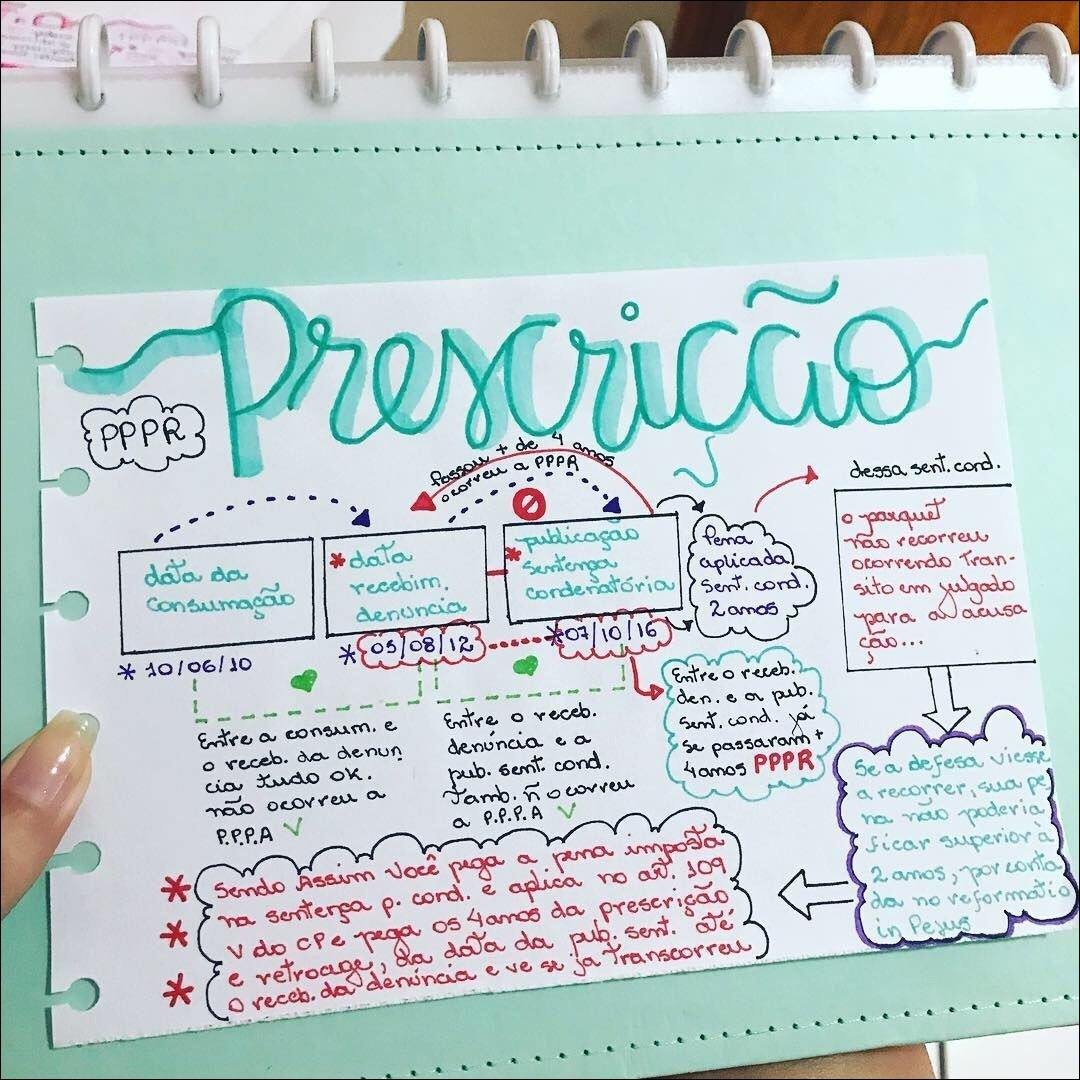 Prescrição
PPPR
Passou + de 4 anos
ocorreu a PPPR
data da
consumação
* 10/06/10
* data
recebim.
denuncia
* 05/08/12
* publicação
sentença
condenatória
* 07/10/16
Pena
aplicada
sent. cond.
2 anos
dessa sent. cond.
o parquet
não recorreu
ocorrendo Tran-
sito em julgado
para a acusa
ção...
Entre a consum. e
o receb. da denun
cia tudo OK.
não ocorreu a
P.P.P.A V
Entre o receb.
denúncia e a
pub. sent. cond.
Tamb. ñ ocorreu
a P.P.P.A V
Entre o receb.
den. e a pub.
sent. cond. já
se passaram +
4 anos PPPR
Se a defesa viesse
a recorrer, sua pe
na não poderia
ficar superior a
2 anos, por conta
da no reformatio
in Pejus
* Sendo Assim Você pega a pena imposta
* na sentença p. cond. e aplica no art. 109
V do CP e pega os 4 anos da prescrição
* e retroage, da data da pub. sent. até
o receb. da denúncia e ve se já transcorreu